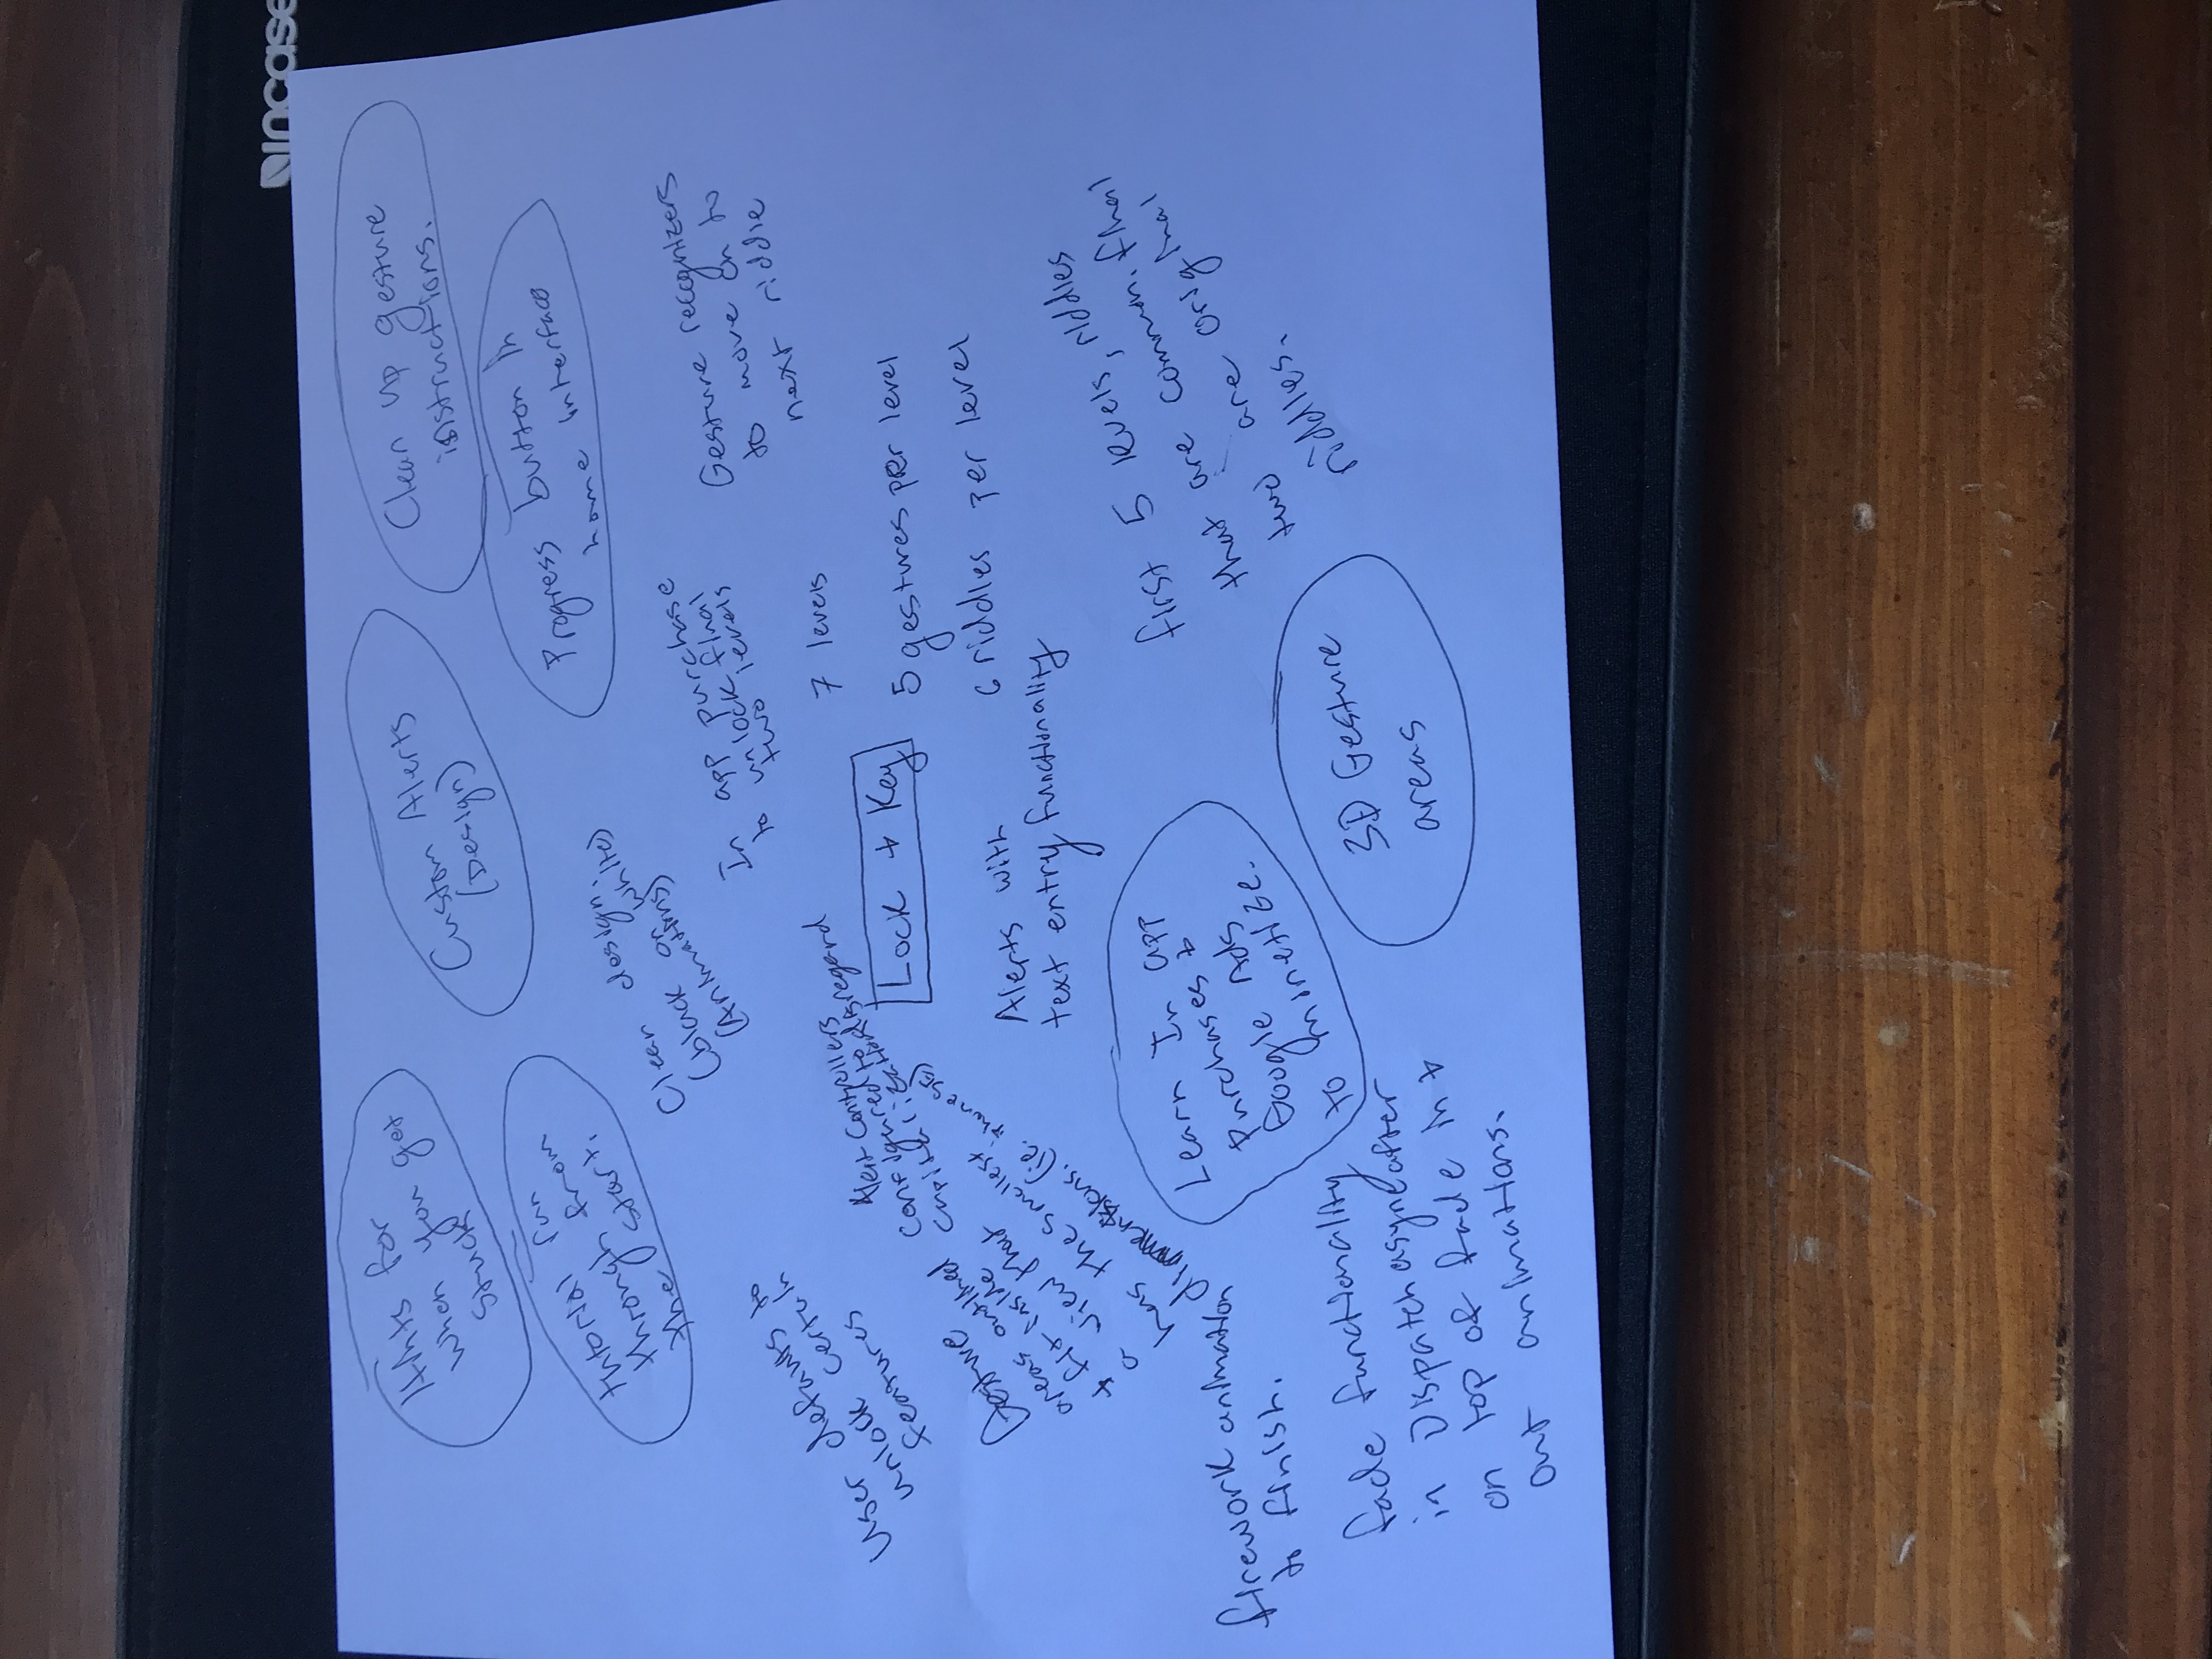 incase
Hints for
when you get
stuck
Custom Alerts
(Design)
Clean up gesture
instructions.
tutorial run
through from
the start.
Progress button in
home interface
Clean design.
(black or white)
(Animations)
In app purchase
to unlock final
two levels
Gesture recognizers
to move on to
next riddle
User defaults to
unlock certain
features
Alert Controllers
configured to disregard
capitalization
7 levels
Lock + Key
5 gestures per level
6 riddles per level
Gesture
areas outlined
+ fit inside
a view that
has the smallest
dimensions. (ie. iphone SE)
Alerts with
text entry functionality
first 5 levels, riddles
that are common. final
two are original
riddles.
Learn In app
Purchases +
Google Ads
to monetize.
firework animation
to finish.
3D Gesture
areas
fade functionality
in Dispatch async after
on top of fade in +
out animations.